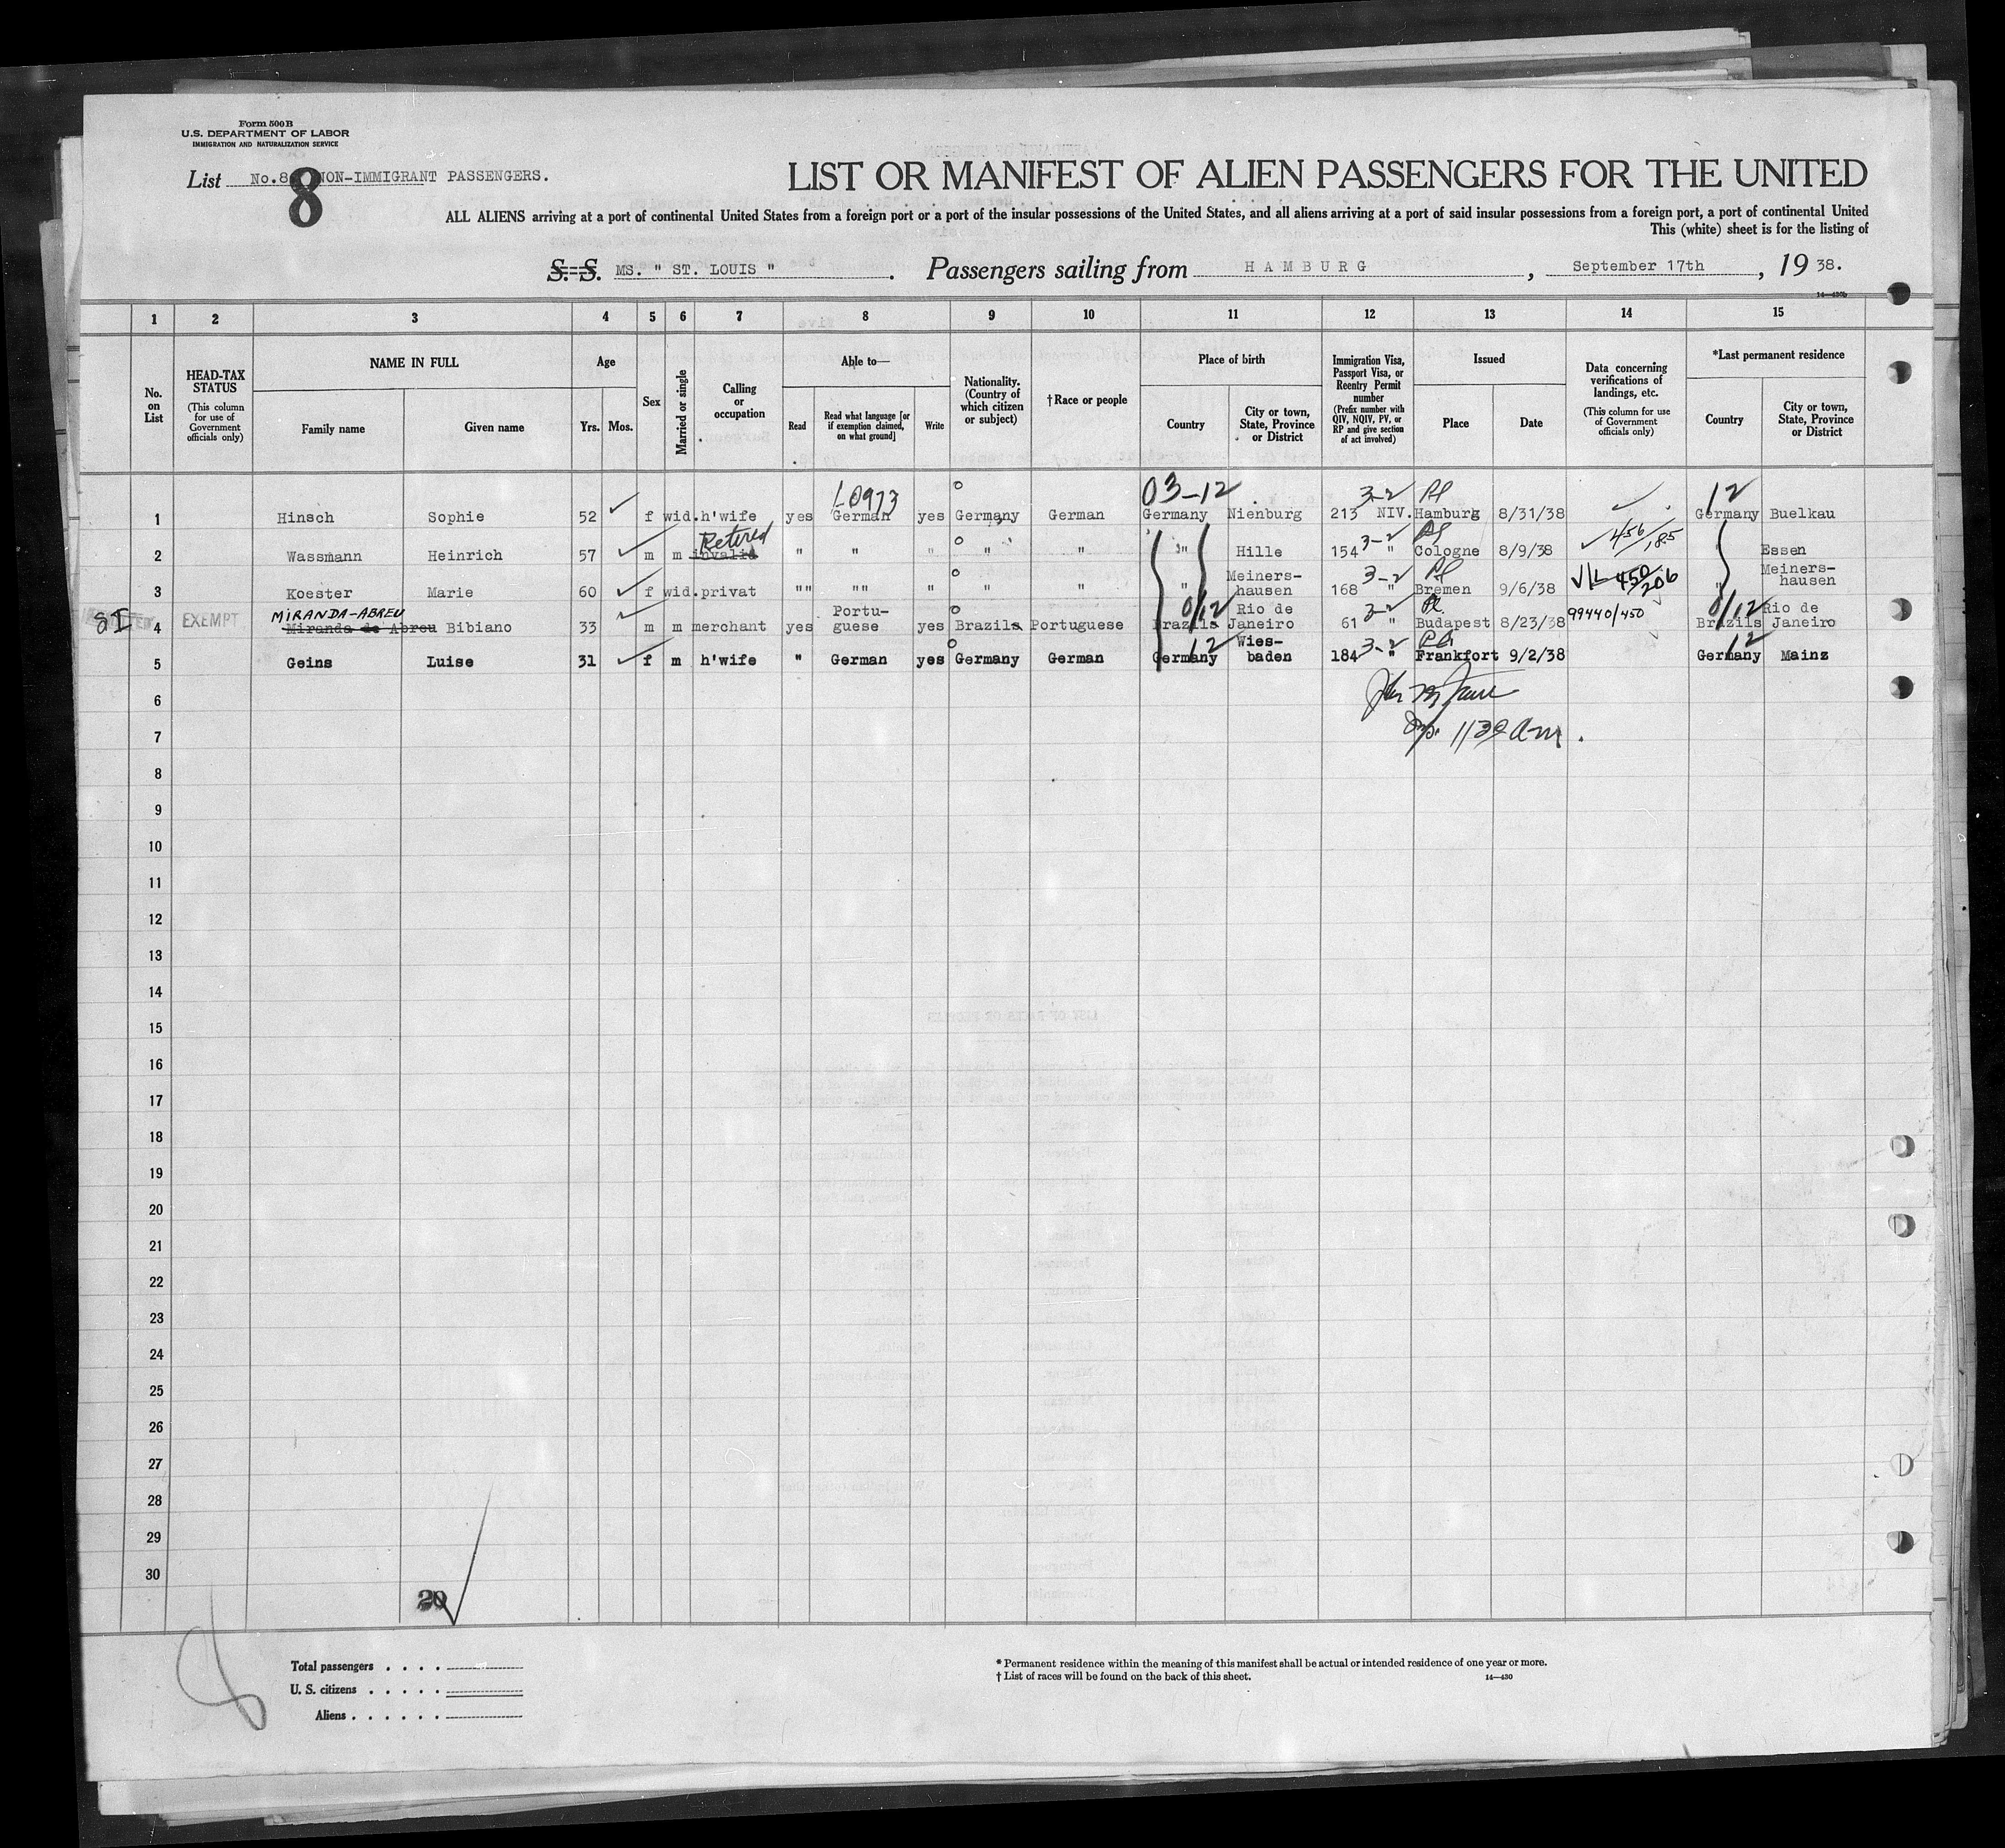 Form 500 B
U.S. DEPARTMENT OF LABOR
IMMIGRATION AND NATURALIZATION SERVICE
List No.8 NON-IMMIGRANT PASSENGERS.
8
LIST OR MANIFEST OF ALIEN PASSENGERS FOR THE UNITED
ALL ALIENS arriving at a port of continental United States from a foreign port or a port of the insular possessions of the United States, and all aliens arriving at a port of said insular possessions from a foreign port, a port of continental United
This (white) sheet is for the listing of
S. S. MS. " ST. LOUIS " . Passengers sailing from H A M B U R G , September 17th , 19 38.
1 2 3 4 5 6 7 8 9 10 11 12 13 14 15
No. on List
HEAD-TAX STATUS (This column for use of Government officials only)
NAME IN FULL
Family name Given name
Age
Yrs. Mos.
Sex
Married or single
Calling or occupation
Able to—
Read Read what language [or if exemption claimed, on what ground] Write
Nationality. (Country of which citizen or subject)
†Race or people
Place of birth
Country City or town, State, Province or District
Immigration Visa, Passport Visa, or Reentry Permit number (Prefix number with QIV, NQIV, PV, or RP and give section of act involved)
Issued
Place Date
Data concerning verifications of landings, etc. (This column for use of Government officials only)
*Last permanent residence
Country City or town, State, Province or District
L0973 03-12 3-2 12
1 Hinsch Sophie 52 f wid. h'wife yes German yes Germany German Germany Nienburg 213 NIV. Hamburg 8/31/38 Germany Buelkau
Retired 3-2 456/185
2 Wassmann Heinrich 57 m m invalid " " " " " " Hille 154 " Cologne 8/9/38 Essen
3 Koester Marie 60 f wid. privat "" "" " " " " Meiners-hausen 168 3-2 " Bremen 9/6/38 450/206 " Meiners-hausen
MIRANDA-ABREU
SI EXEMPT
4 Miranda de Abreu Bibiano 33 m m merchant yes Portu-guese yes Brazils Portuguese Brazils 0/12 Rio de Janeiro 61 3-2 " Budapest 8/23/38 99440/450 Brazils 0/12 Rio de Janeiro
5 Geins Luise 31 f m h'wife " German yes Germany German Germany 12 Wies-baden 184 3-2 " Frankfort 9/2/38 Germany 12 Mainz
6
7 1130 am.
8
9
10
11
12
13
14
15
16
17
18
19
20
21
22
23
24
25
26
27
28
29
30
20
8
Total passengers . . . .
U. S. citizens . . . . .
Aliens . . . . . .
* Permanent residence within the meaning of this manifest shall be actual or intended residence of one year or more.
† List of races will be found on the back of this sheet.
14—430